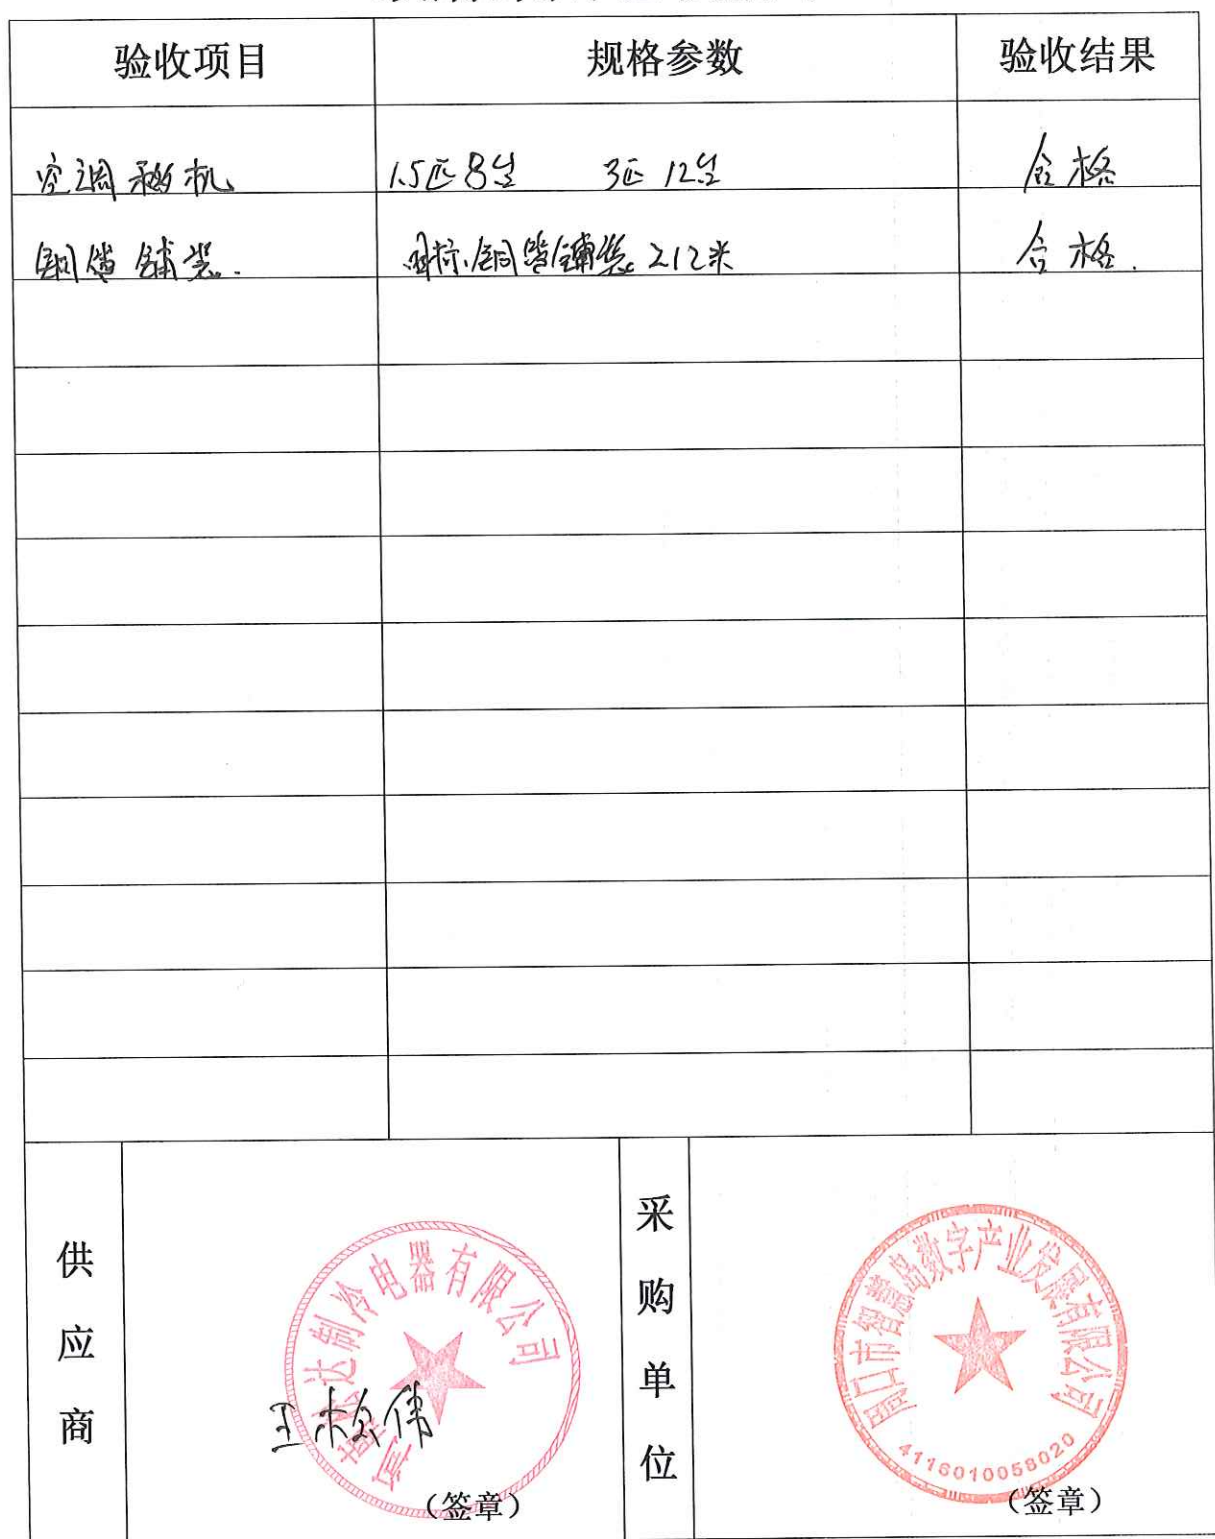 验收项目 规格参数 验收结果
空调移机 1.5匹8台 3匹12台 合格
铜管铺装. 国标铜管铺装212米 合格.
供应商
采购单位
制冷电器有限公司
周口市智慧岛数字产业发展有限公司
4116010058020
(签章)
(签章)